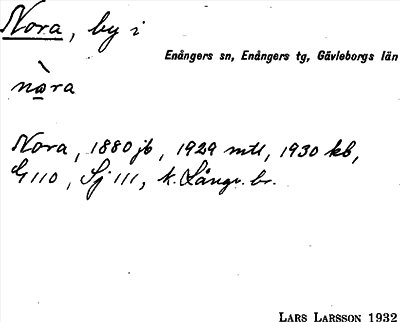 Nora, by i
Enångers sn, Enångers tg, Gävleborgs län
nòra
Nora, 1880 jb, 1929 mtl, 1930 kb,
G 110, Sj 111, k. Långv. br.
LARS LARSSON 1932